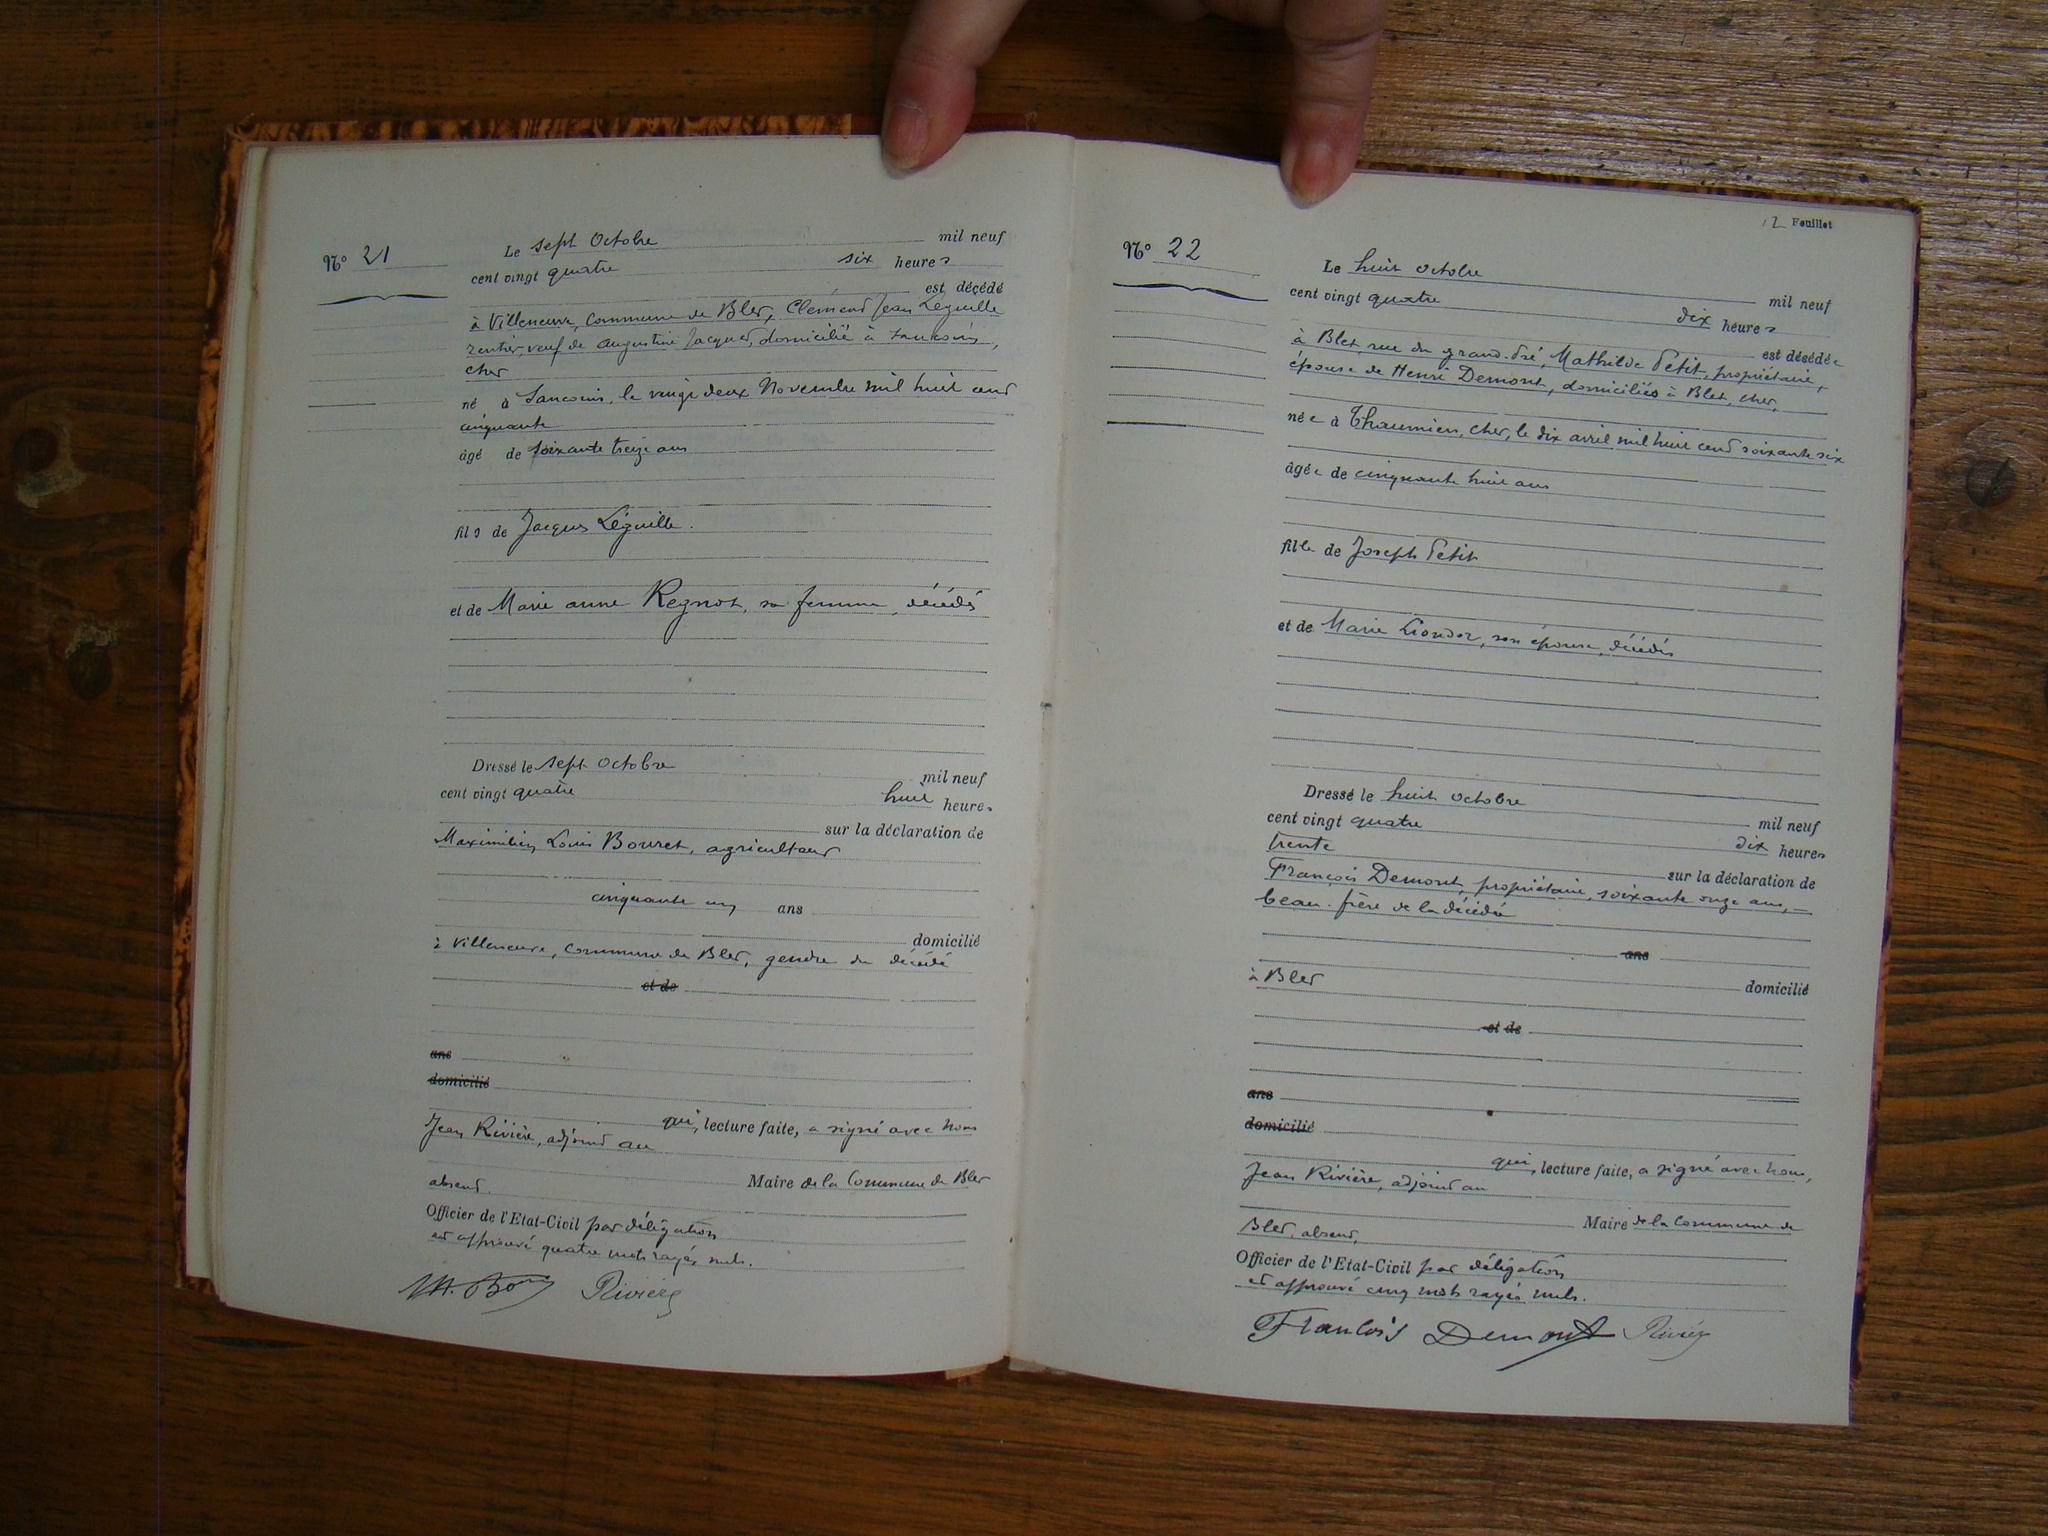 N° 21
Le sept Octobre mil neuf
cent vingt quatre six heures
est décédé
à Villeneuve, Commune de Blet, Clément Jean Léguille
rentier, veuf de Augustine Jacquet, domicilié à Sancoins,
Cher
né à Sancoins, le vingt deux Novembre mil huit cent
cinquante
âgé de soixante treize ans
fils de Jacques Léguille.
et de Marie Anne Regnot, sa femme, décédés
Dressé le sept Octobre mil neuf
cent vingt quatre huit heures
sur la déclaration de
Maximilien Louis Bouret, agriculteur
cinquante un ans
domicilié
à Villeneuve, Commune de Blet, gendre du décédé
et de
ans
domicilié
qui, lecture faite, a signé avec nous
Jean Rivière, adjoint au
Maire de la Commune de Blet
absent.
Officier de l'Etat-Civil par délégation
et approuvé quatre mots rayés nuls.
Rivière
12 Feuillet
N° 22
Le huit octobre mil neuf
cent vingt quatre dix heures
est décédée
à Blet, rue du grand-Pré, Mathilde Petit, propriétaire,
épouse de Henri Demont, domiciliés à Blet, Cher,
née à Thaumiers, Cher, le dix avril mil huit cent soixante six
âgée de cinquante huit ans
fille de Joseph Petit
et de Marie son épouse, décédés
Dressé le huit octobre mil neuf
cent vingt quatre dix heures
trente
sur la déclaration de
François Demont, propriétaire, soixante onze ans,
beau-frère de la décédée
ans
à Blet domicilié
et de
ans
domicilié
qui, lecture faite, a signé avec nous,
Jean Rivière, adjoint au
Maire de la Commune de
Blet, absent,
Officier de l'Etat-Civil par délégation
et approuvé cinq mots rayés nuls.
François Demont Rivière